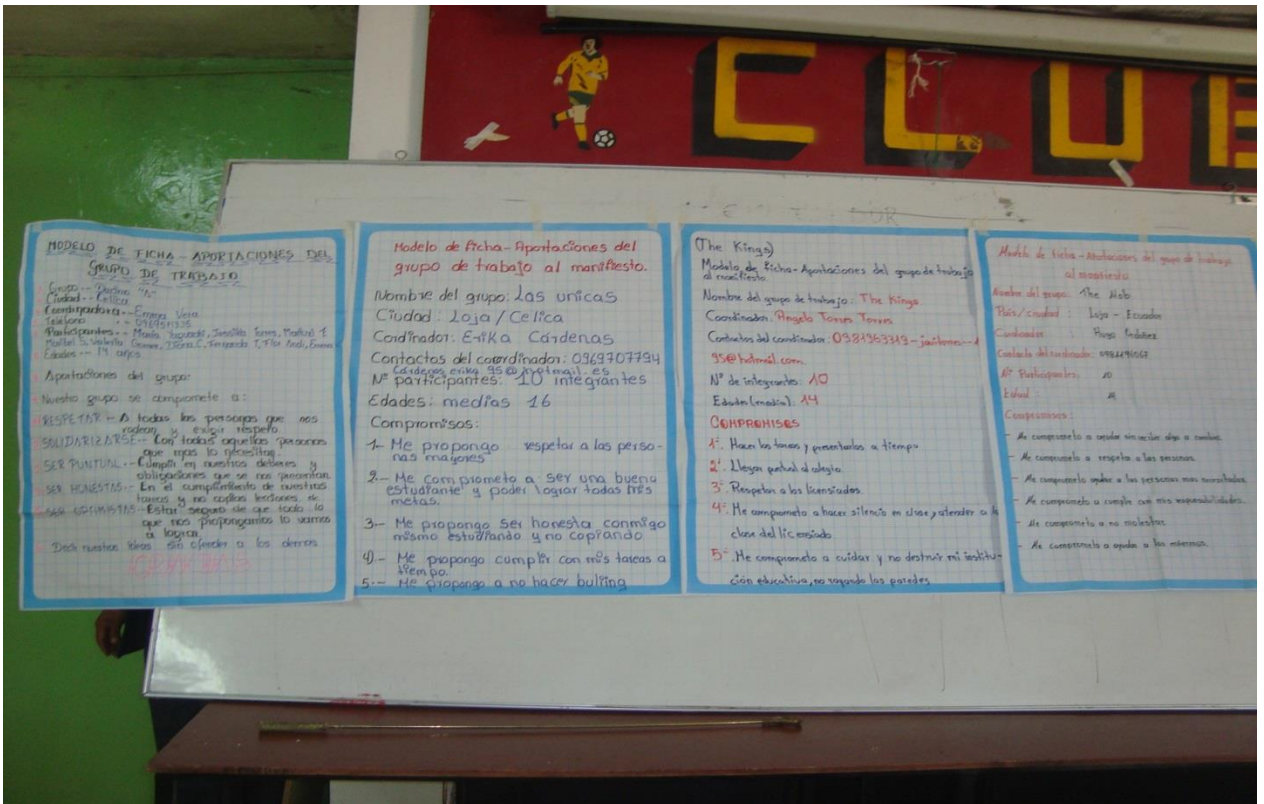 CLUB
MODELO DE FICHA - APORTACIONES DEL
GRUPO DE TRABAJO
Grupo -- Décimo "A"
Ciudad -- Celica
Coordinadora -- Emma Vera
Teléfono --
Participantes --
Edades -- 14 años
Aportaciones del grupo:
Nuestro grupo se compromete a:
RESPETAR -- A todas las personas que nos
rodean y exigir respeto.
SOLIDARIZARSE -- Con todas aquellas personas
que mas lo necesitan.
SER PUNTUAL -- Cumplir en nuestros deberes y
obligaciones que se nos presentan.
SER HONESTAS -- En el cumplimiento de nuestros
tareas y no copiar lecciones.
SER OPTIMISTAS -- Estar seguro de que todo lo
que nos propongamos lo vamos
a lograr.
Decir nuestras ideas sin ofender a los demas
Modelo de ficha - Aportaciones del
grupo de trabajo al manifiesto.
Nombre del grupo: Las unicas
Ciudad: Loja / Celica
Cordinador: Erika Cárdenas
Contactos del coordinador: 0969707794
Cárdenas erika 95@hotmail.es
Nº participantes: 10 integrantes
Edades: medias 16
Compromisos:
1.- Me propongo respetar a las perso-
nas mayores
2.- Me comprometo a ser una buena
estudiante y poder lograr todas mis
metas.
3.- Me propongo ser honesta conmigo
mismo estudiando y no copiando
4).- Me propongo cumplir con mis tareas a
tiempo.
5.- Me propongo a no hacer bulling
(The Kings)
Modelo de ficha - Aportaciones del grupo de trabajo
al manifiesto.
Nombre del grupo de trabajo: The Kings
Coordinador: Angelo Torres Torres
Contactos del coordinador: 0981363319 -
95@hotmail.com.
Nº de integrantes: 10
Edades (media): 14
COMPROMISOS
1º. Hacer los tareas y presentarlos a tiempo
2º. Llegar puntual al colegio.
3º. Respetar a los licensiados
4º. Me comprometo a hacer silencio en clase y atender a la
clase del licensiado
5º. Me comprometo a cuidar y no destruir mi institu-
ción educativa, no rayando las paredes
Modelo de ficha - Aportaciones del grupo de trabajo
al manifiesto
Nombre del grupo: The Mob
País / ciudad : Loja - Ecuador
Cordinador : Hugo Ordoñez
Contacto del cordinador:
Nº Participantes: 10
Edad :
Compromisos:
- Me comprometo a ayudar sin recibir algo a cambio.
- Me comprometo a respetar a las personas.
- Me comprometo ayudar a las personas mas necesitadas.
- Me comprometo a cumplir con mis responsabilidades.
- Me comprometo a no molestar
- Me comprometo a ayudar a los mismos.